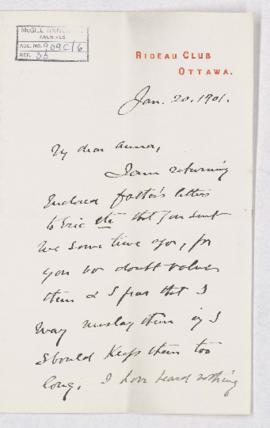 McGILL UNIVERSITY
ARCHIVES
ACC. NO. 909C/6
REF. 33
RIDEAU CLUB
OTTAWA.
Jan. 20, 1901.
My dear Anna,
I am returning
enclosed father's letters
to Eric that you sent
me some time ago, for
you no doubt value
them & I fear that I
may mislay them if I
should keep them too
long. I have heard nothing